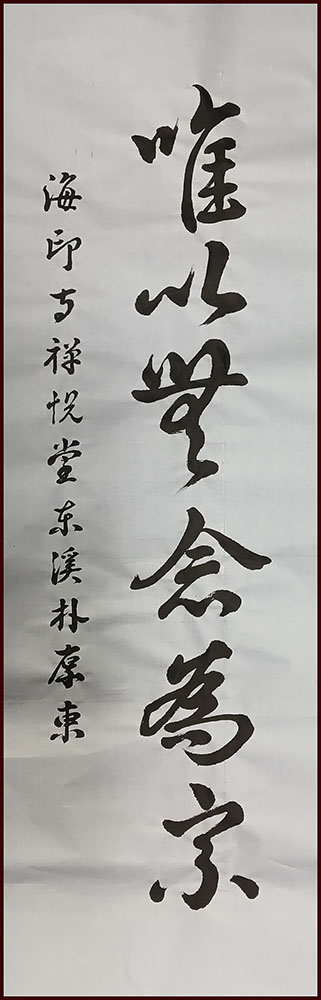 唯以無念為宗
海印寺禅悦堂东溪朴寅東